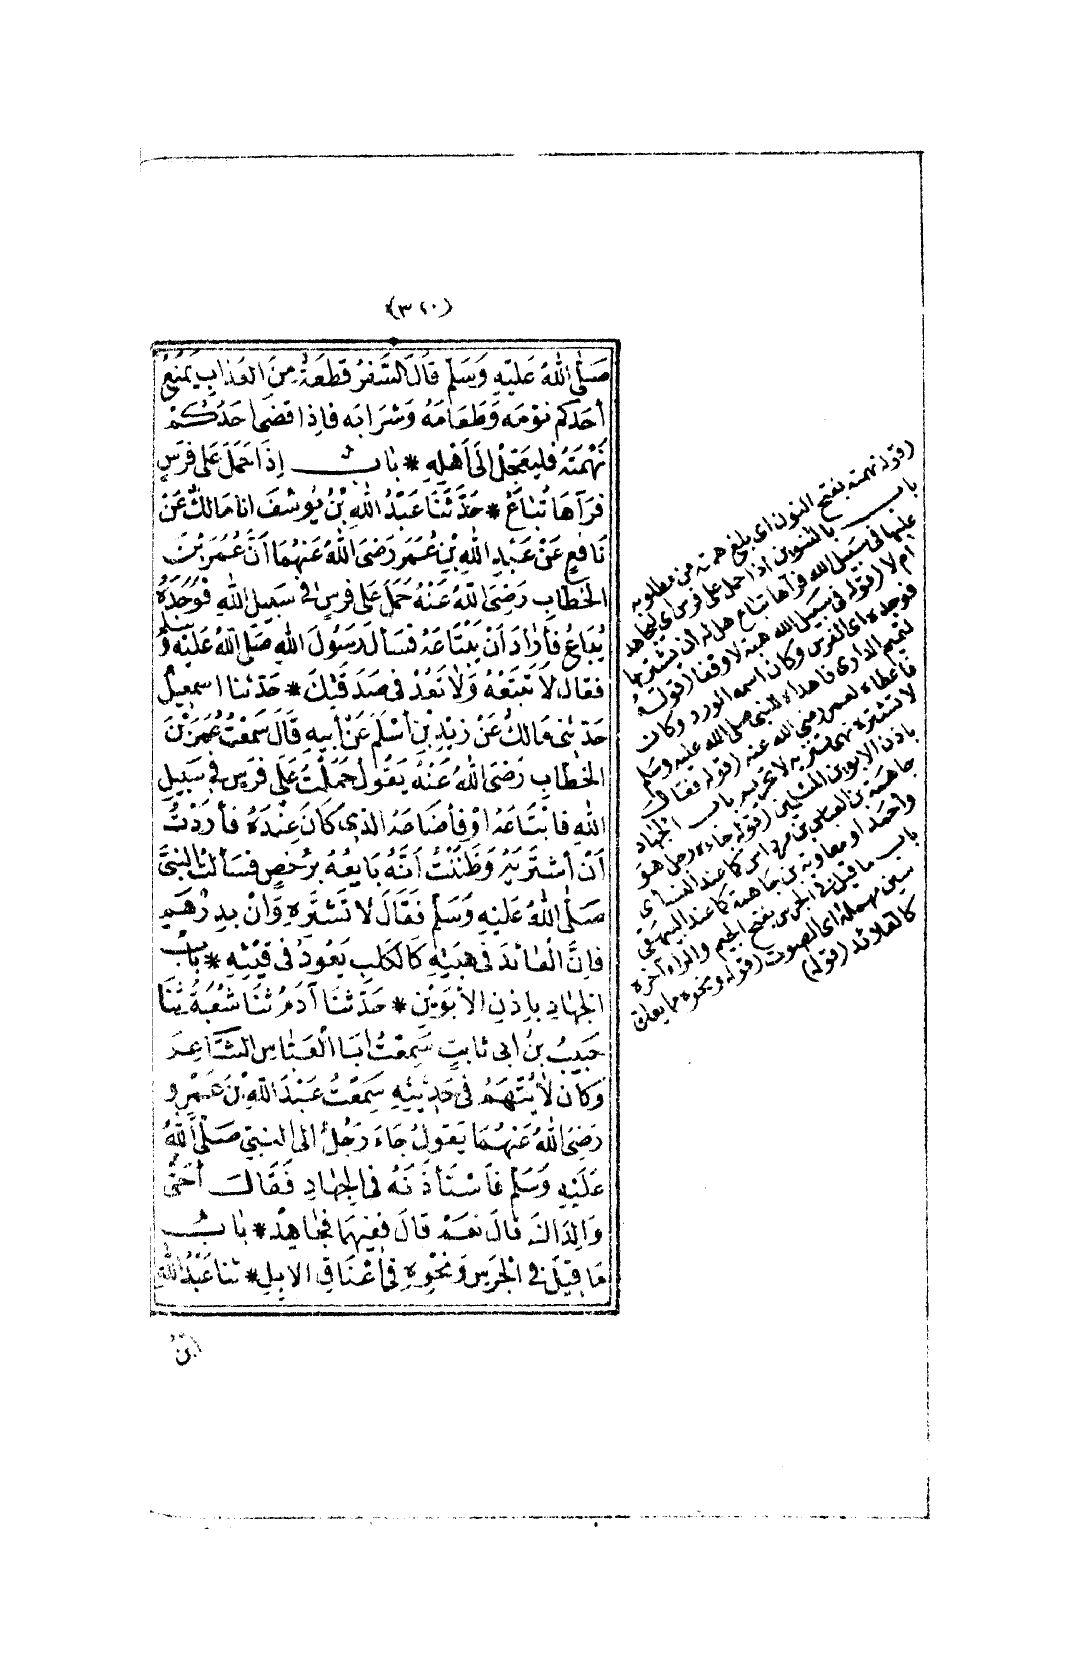 (٣٢٠)
صَلَّى اللهُ عَلَيْهِ وَسَلَّمَ قَالَ السَّفَرُ قِطْعَةٌ مِنَ العَذَابِ يَمْنَعُ
أَحَدَكُمْ نَوْمَهُ وَطَعَامَهُ وَشَرَابَه فَاِذَا قَضَى اَحَدُكُمْ
نَهْمَتَهُ فَليُعَجِّلْ اِلَى أَهْلِهِ * بَابٌ اِذَا حَمَلَ عَلَى فَرَسٍ
فَرَآهَا تُبَاعُ * حَدَّثَنَا عَبْدُ اللهِ بْنُ يُوسُفَ انا مَالِكٌ عَنْ
نَافِعٍ عَنْ عَبْدِ اللهِ بْنِ عُمَرَ رَضِىَ اللهُ عَنْهُمَا أَنَّ عُمَرَ بْنَ
الخَطَّابِ رَضِىَ اللهُ عَنْهُ حَمَلَ عَلَى فَرَسٍ فِى سَبِيلِ اللهِ فَوَجَدَهُ
يُبَاعُ فَأَرَادَ أَنْ يَبْتَاعَهُ فَسَأَلَ رَسُولَ اللهِ صَلَّى اللهُ عَلَيْهِ وَسَلَّمَ
فَقَالَ لاَ تَبْتَعْهُ وَلاَ تَعُدْ فِى صَدَقَتِكَ * حَدَّثَنَا اسمٰعِيلُ
حَدَّثَنِى مَالِكٌ عَنْ زَيْدِ بْنِ أَسْلَمَ عَنْ أَبِيهِ قَالَ سَمِعْتُ عُمَرَ بْنَ
الخَطَّابِ رَضِىَ اللهُ عَنْهُ يَقُولُ حَمَلْتُ عَلَى فَرَسٍ فِى سَبِيلِ
اللهِ فَابْتَاعَهُ اَوْ فَأَضَاعَهُ الَّذِى كَانَ عِنْدَهُ فَأَرَدْتُ
أَنْ أَشْتَرِيَهُ وَظَنَنْتُ أَنَّهُ بَايِعُهُ بِرُخْصٍ فَسَأَلْتُ النَّبِىَّ
صَلَّى اللهُ عَلَيْهِ وَسَلَّمَ فَقَالَ لاَ تَشْتَرِهِ وَاِنْ بِدِرْهَمٍ
فَاِنَّ الْعَائِدَ فِى هِبَتِهِ كَالكَلْبِ يَعُودُ فِى قَيْئِهِ * بَابُ
الجِهَادِ بِاِذْنِ الأَبَوَيْنِ * حَدَّثَنَا آدَمُ ثَنَا شُعْبَةُ ثَنَا
حَبِيبُ بْنُ اَبِى ثَابِتٍ سَمِعْتُ أَبَا الْعَبَّاسِ الشَّاعِرَ
وَكَانَ لاَ يُتَّهَمُ فِى حَدِيثِهِ سَمِعْتُ عَبْدَ اللهِ بْنَ عَمْرٍو
رَضِىَ اللهُ عَنْهُمَا يَقُولُ جَاءَ رَجُلٌ اِلَى النَّبِىِّ صَلَّى اللهُ
عَلَيْهِ وَسَلَّمَ فَاسْتَأْذَنَهُ فِى الجِهَادِ فَقَالَ أَحَىٌّ
وَالِدَاكَ قَالَ نَعَمْ قَالَ فَفِيهِمَا فَجَاهِدْ * بَابُ
مَا قِيلَ فِى الْجَرَسِ وَنَحْوِهِ فِى أَعْنَاقِ الاِبِلِ * ثنا عَبْدُ اللهِ
ابْنُ
(قوله نهمته بفتح النون اى بلغ همته من مطلوبه
باب بالتنوين اذا حمل على فرس اى ليجاهد
عليها فى سبيل الله فرآها تباع هل له ان يشتريها
ام لا (قوله فى سبيل الله هبة لا وقفا (قوله
فوجده اى الفرس وكان اسمه الورد وكان
لتميم الدارى فاهداه للنبى صلى الله عليه وسلم
فأعطاه لعمر رضى الله عنه (قوله فقال
لا تشتره نهى تنزيه لا تحريم باب الجهاد
باذن الابوين المسلمين (قوله جاء رجل هو
جاهمة بن العباس بن مرداس كما عند النسائى
واحمد او معاوية بن جاهمة كما عند البيهقى
باب ما قيل فى الجرس بفتح الجيم والراء آخره
سين مهملة اى الصوت (قوله ونحوه مما يعلق
كالقلائد (قوله)